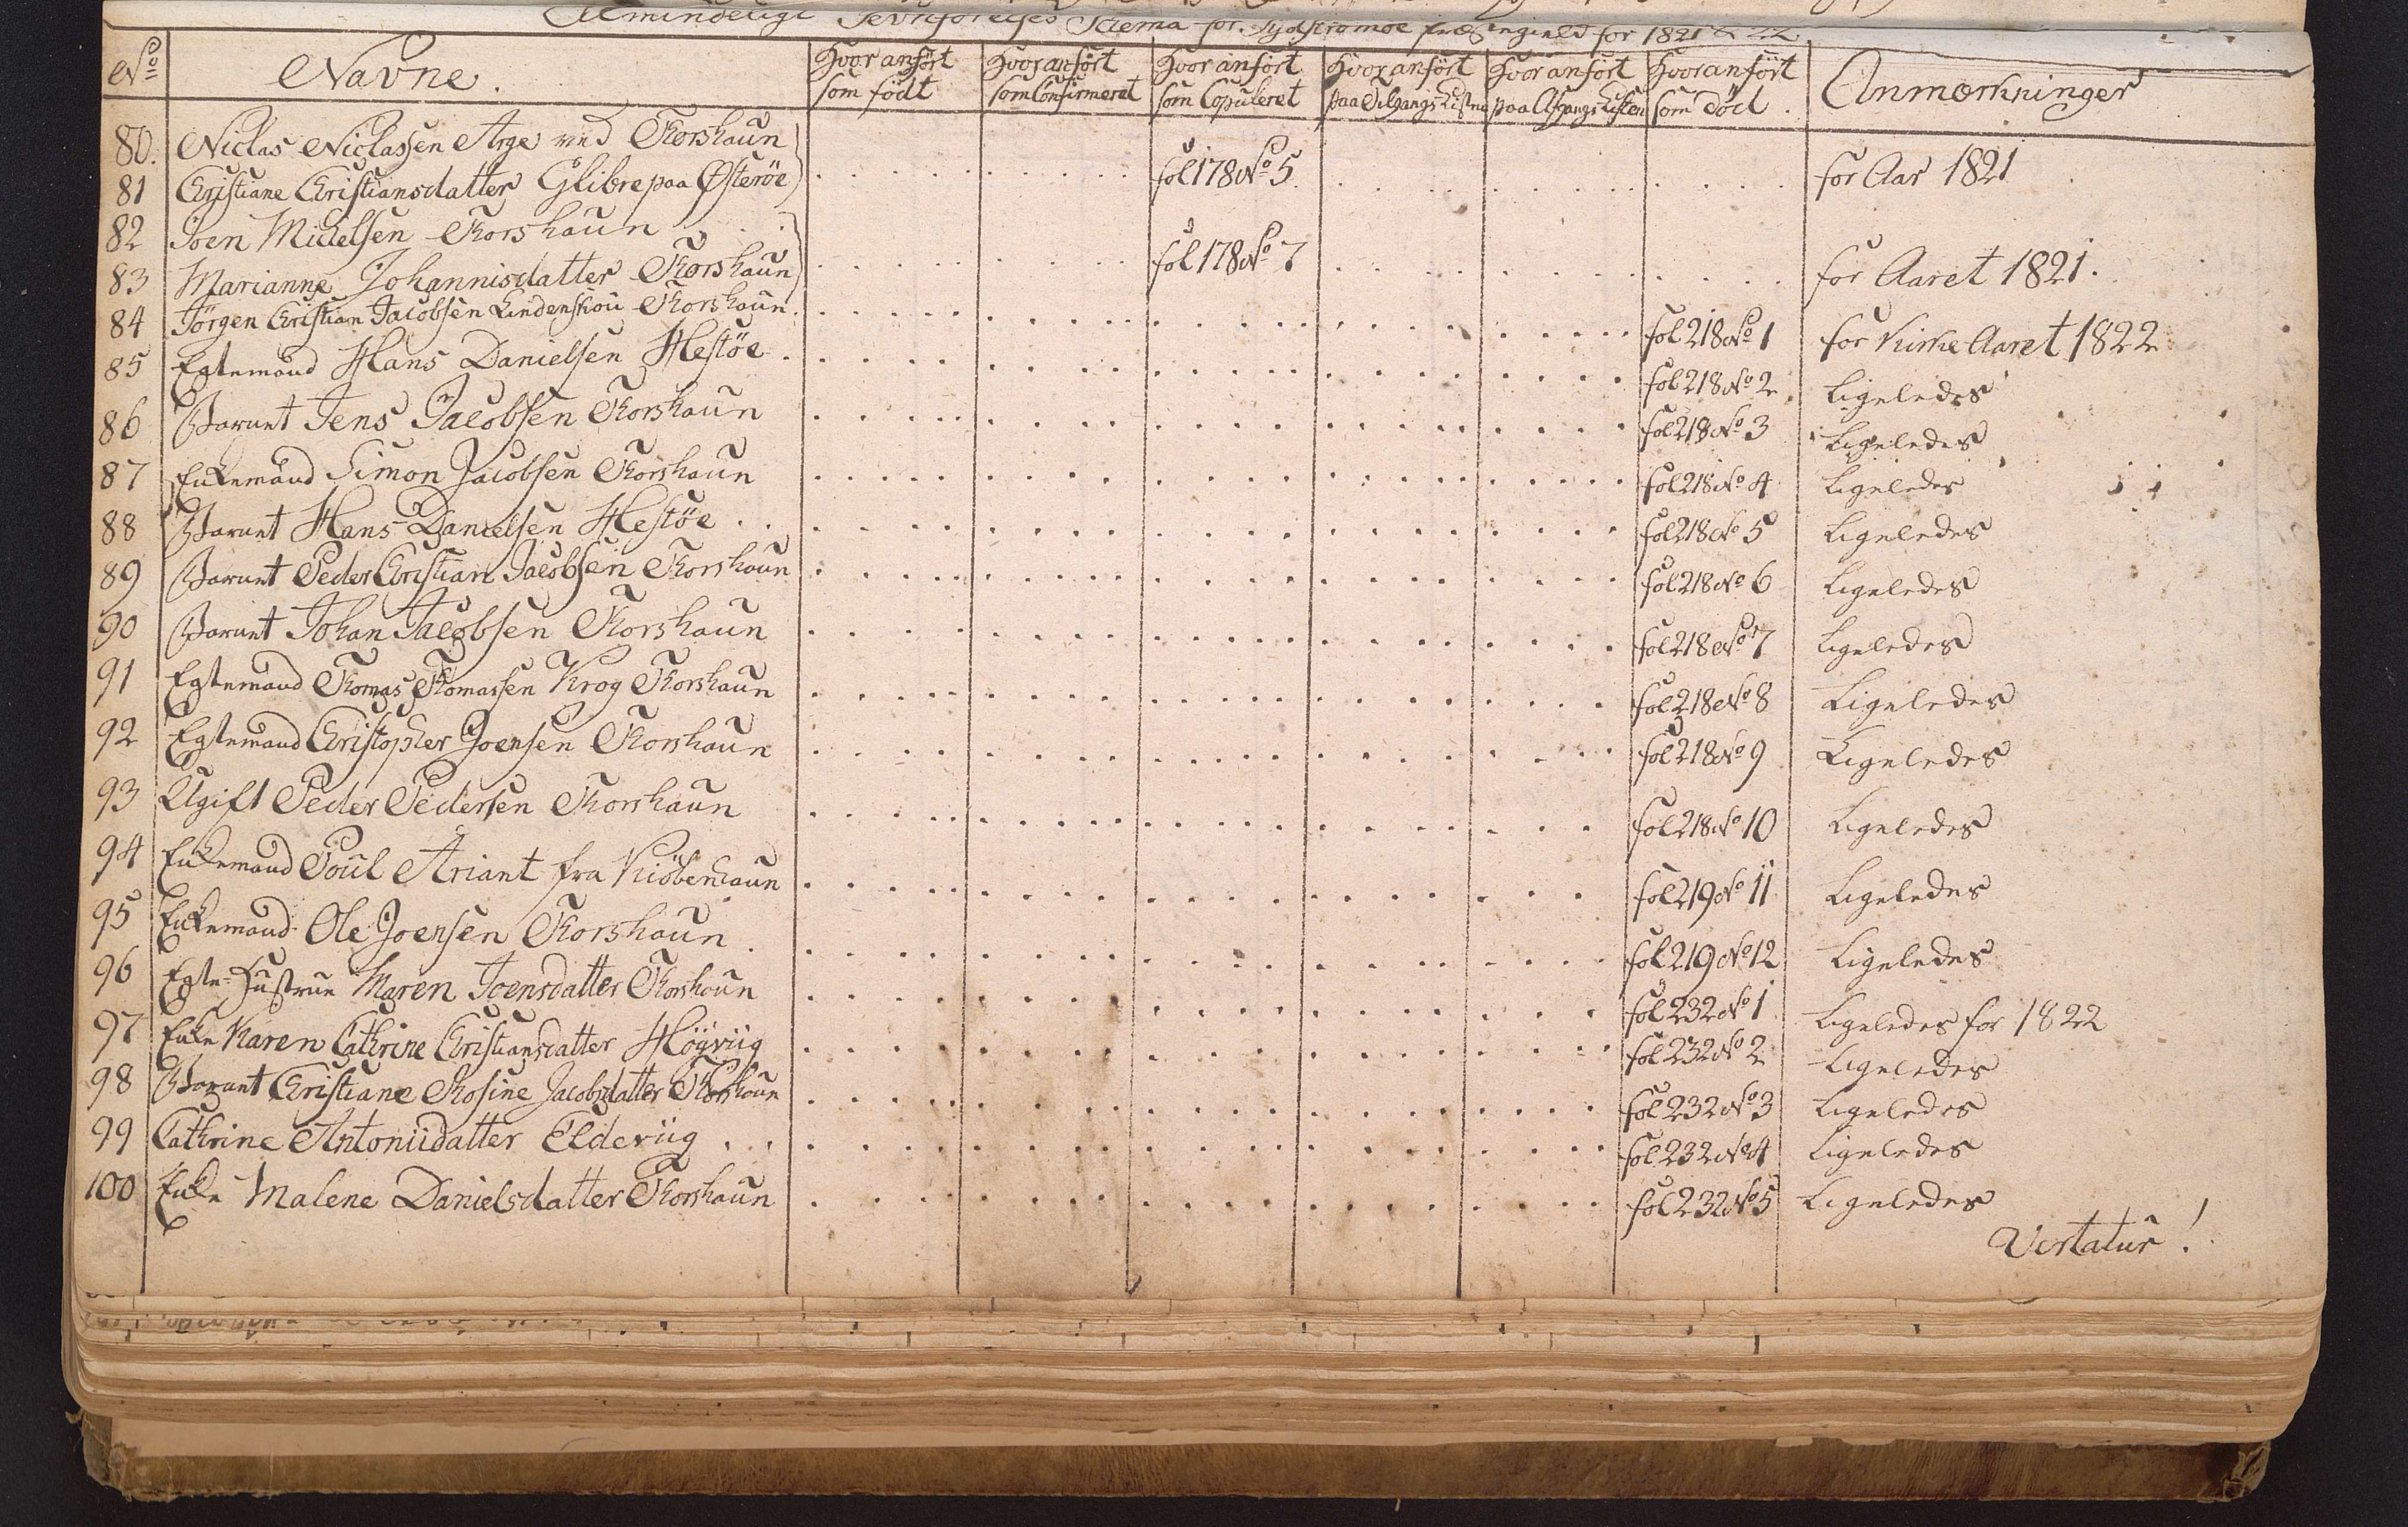 Almindeligt Jevnførelses Schema for Sydstrømøe Præstegield for 1821 & 22
No Navne. Hvor anført som født Hvor anført som Confirmeret Hvor anført som Copuleret Hvor anført paa Tilgangs Listen Hvor anført paa Afgangs Listen Hvor anført som Død. Anmærkninger
80. Niclas Niclassen Arge ved Thorshaun
81 Christiane Christiansdatter Glibre paa Østerøe fol 178 No 5. for Aar 1821
82 Joen Michelsen Thorshaun
83 Marianne Johannisdatter Thorshaun fol 178 No 7 for Aaret 1821.
84 Jørgen Christian Jacobsen Lindenskou Thorshaun. fol 218 No 1 for Kirke Aaret 1822
85 Egtemand Hans Danielsen Hestøe. fol 218 No 2 Ligeledes
86 Barnet Jens Jacobsen Thorshaun fol 218 No 3 Ligeledes
87 Enkemand Simon Jacobsen Thorshaun fol 218 No 4 Ligeledes
88 Barnet Hans Danielsen Hestøe fol 218 No 5 Ligeledes
89 Barnet Peder Christian Jacobsen Thorshaun fol 218 No 6 Ligeledes
90 Barnet Johan Jacobsen Thorshaun fol 218 No 7 Ligeledes
91 Egtemand Thomas Thomassen Krog Thorshaun fol 218 No 8 Ligeledes
92 Egtemand Christopher Joensen Thorshaun fol 218 No 9 Ligeledes
93 Ugift Peder Pedersen Thorshaun fol 218 No 10 Ligeledes
94 Enkemand Poul Ariant fra Kiöbenhaun fol 219 No 11 Ligeledes
95 Enkemand Ole Joensen Thorshaun fol 219 No 12 Ligeledes
96 Egte-Hustrue Maren Joensdatter Thorshaun fol 232 No 1 Ligeledes for 1822
97 Enke Karen Cathrine Christiansdatter Høgviig fol 232 No 2 Ligeledes
98 Barnet Christiane Rosine Jacobsdatter Thorshaun fol 232 No 3 Ligeledes
99 Cathrine Antoniidatter Eldeviig fol 232 No 4 Ligeledes
100 Enke Malene Danielsdatter Thorshaun fol 232 No 5 Ligeledes
Vertatur!